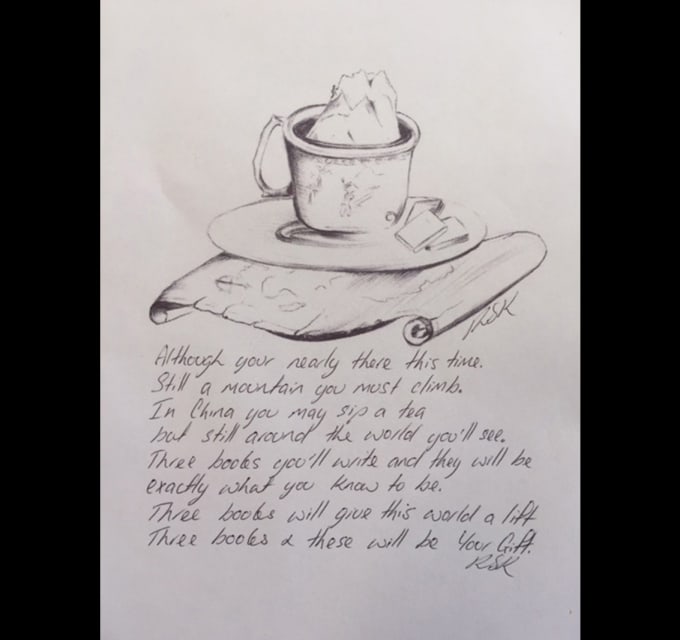 RSK
Although your nearly there this time.
Still a mountain you must climb.
In China you may sip a tea
but still around the world you'll see.
Three books you'll write and they will be
exactly what you know to be.
Three books will give this world a lift
Three books & these will be Your Gift.
RSK